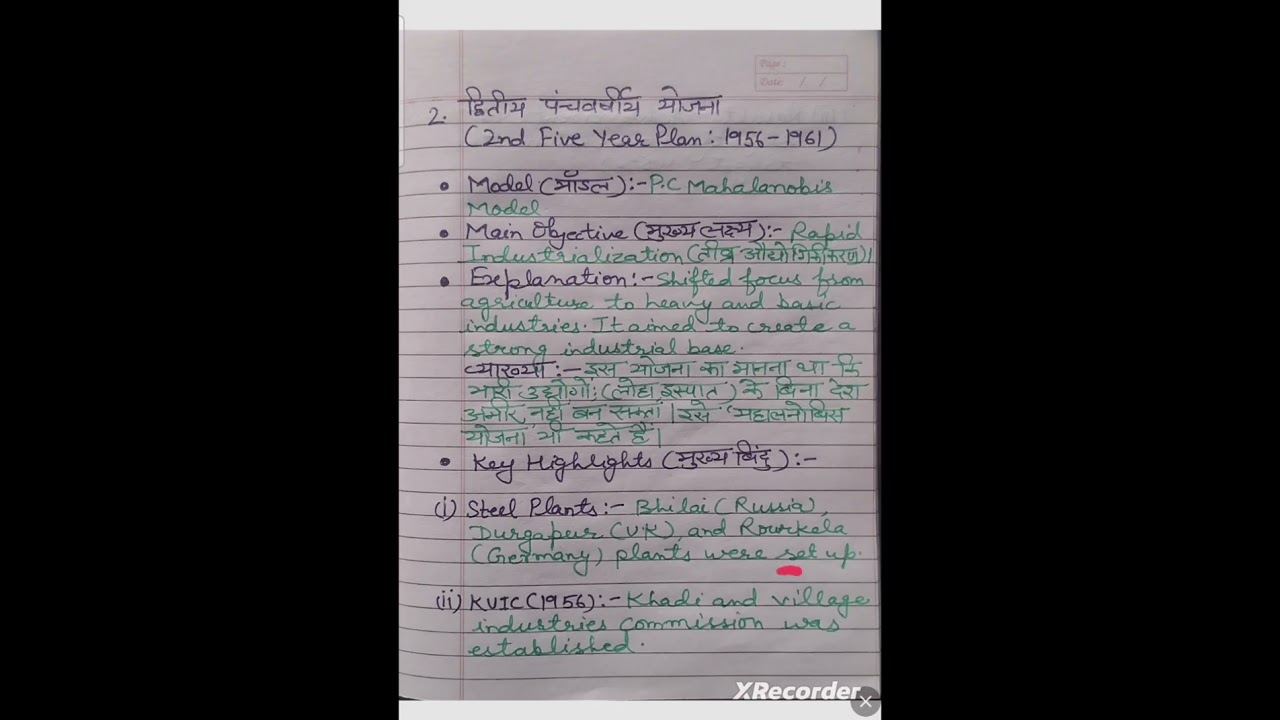 Page :
Date: / /
2. द्वितीय पंचवर्षीय योजना
(2nd Five Year Plan: 1956-1961)
• Model (मॉडल) :- P.C Mahalanobis
Model
• Main Objective (मुख्य लक्ष्य) :- Rapid
Industrialization (तीव्र औद्योगिकीकरण)।
• Explanation :- Shifted focus from
agriculture to heavy and basic
industries. It aimed to create a
strong industrial base.
व्याख्या :- इस योजना का मानना था कि
भारी उद्योगों (लोहा इस्पात) के बिना देश
अमीर नहीं बन सकता। इसे 'महालनोबिस
योजना' भी कहते हैं।
• Key Highlights (मुख्य बिंदु) :-
(i) Steel Plants :- Bhilai (Russia),
Durgapur (UK), and Rourkela
(Germany) plants were set up.
(ii) KVIC (1956) :- Khadi and village
industries commission was
established.
XRecorder